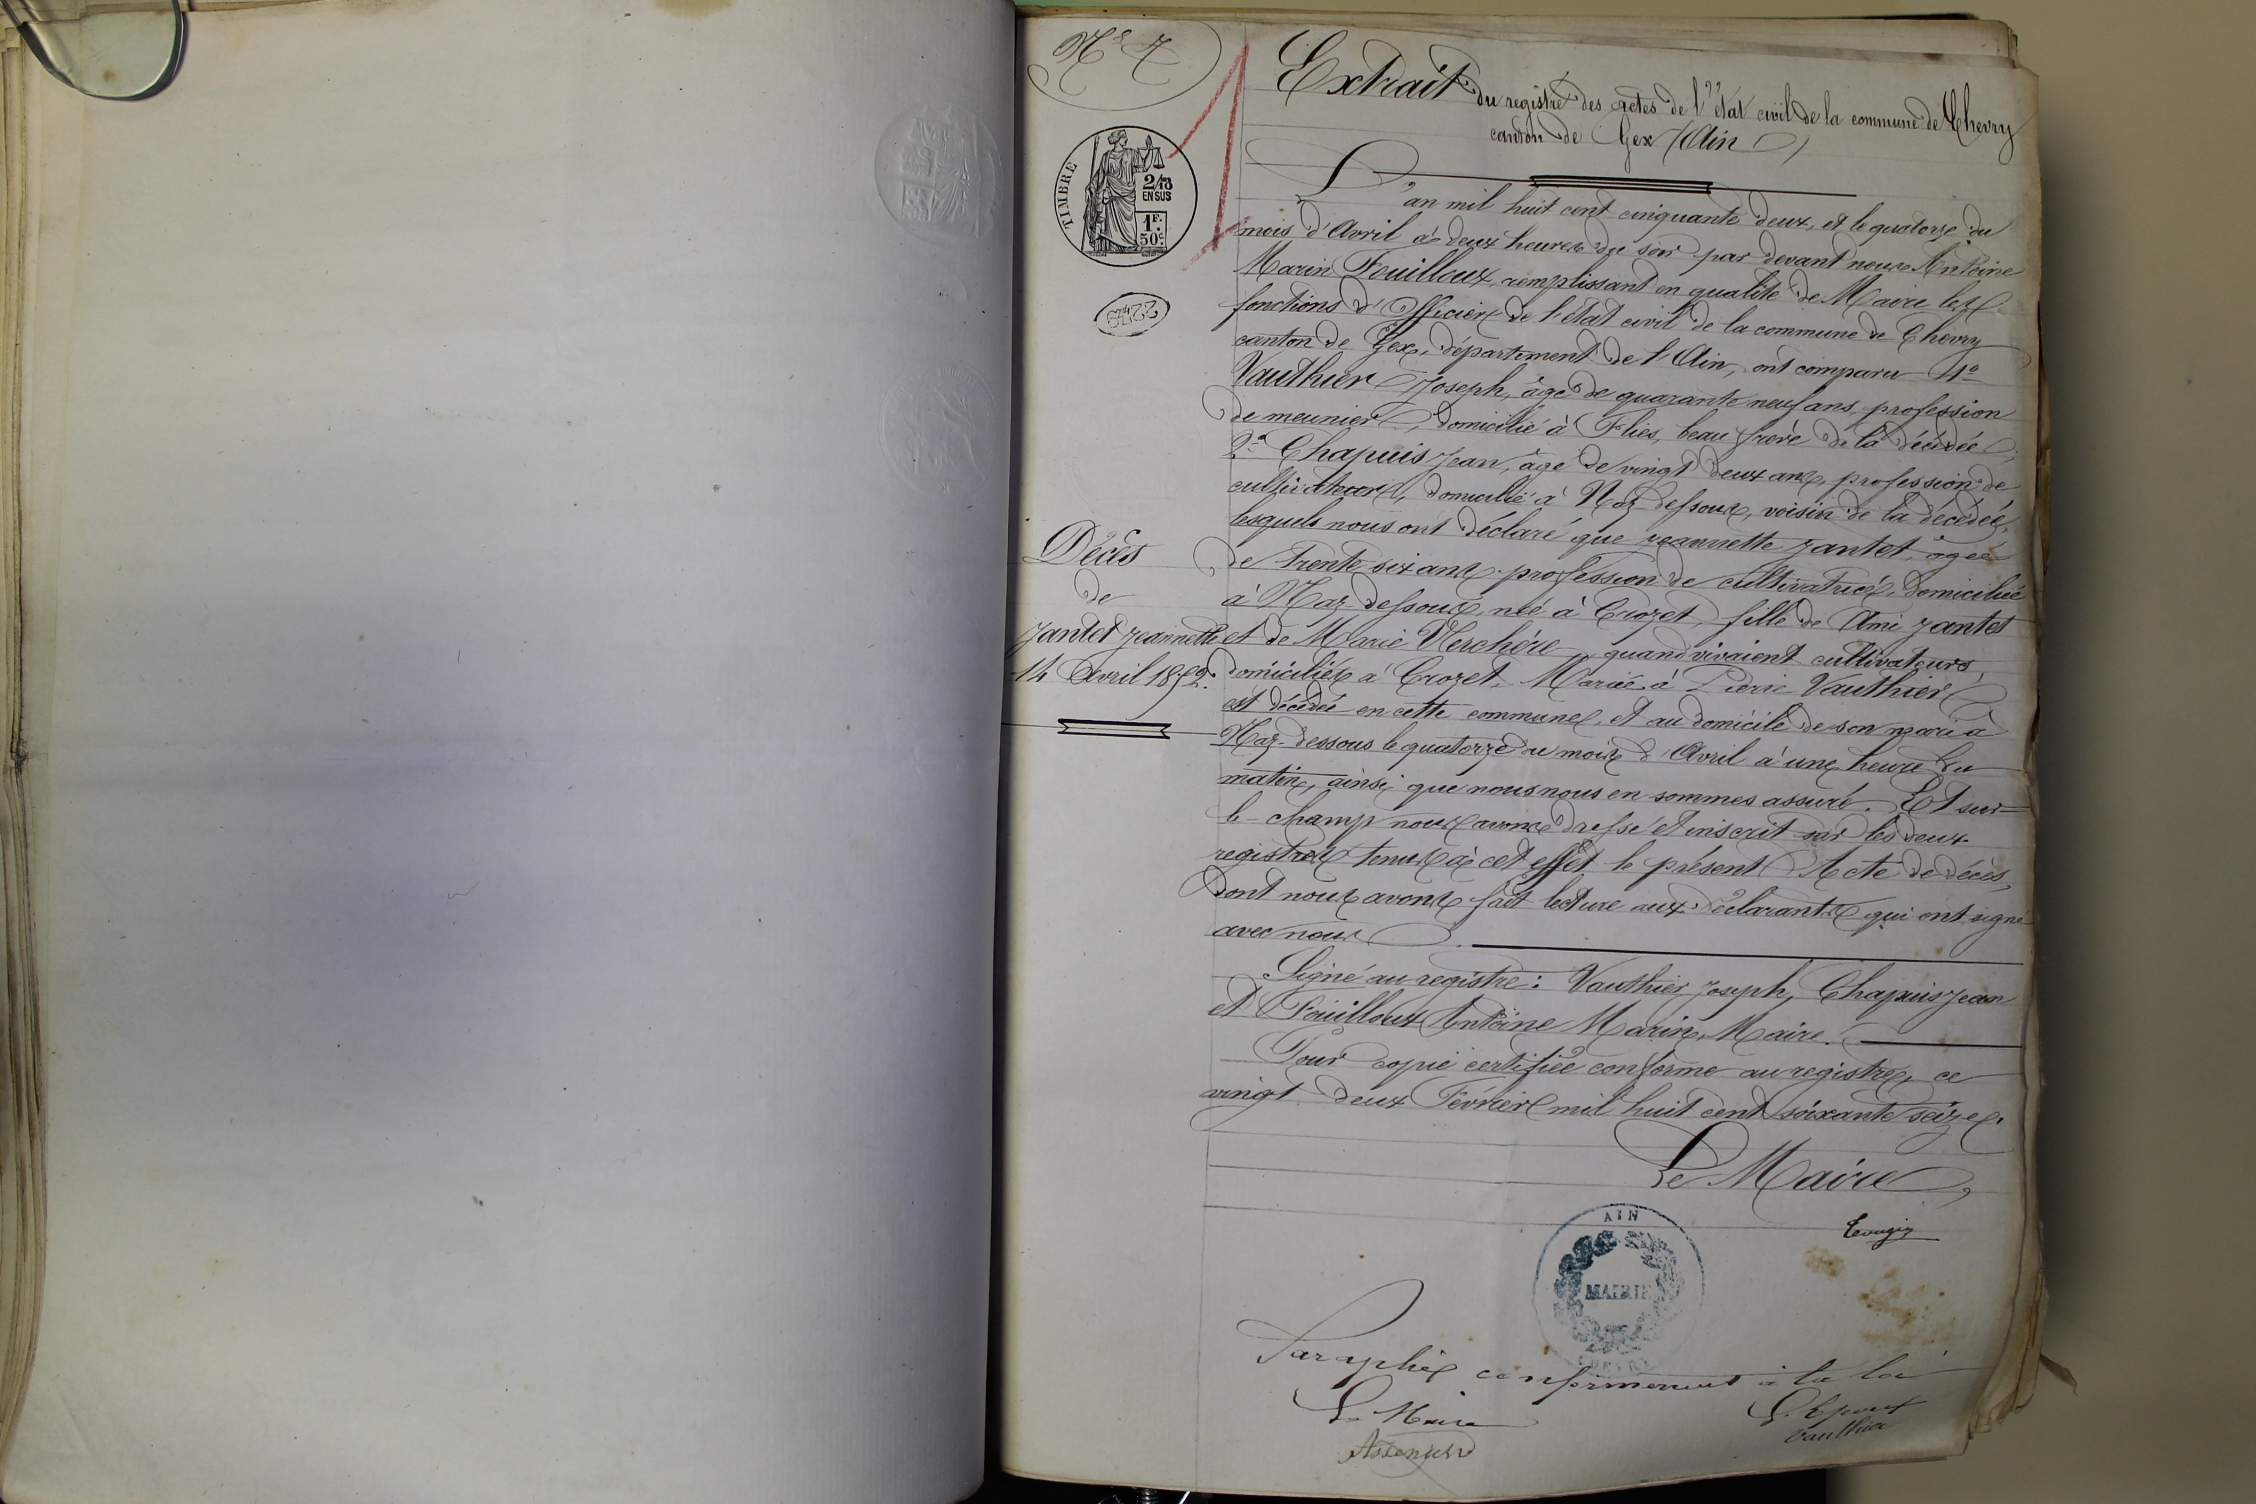 N° 7
TIMBRE
2/10
EN SUS
1F.
50c
Extrait du registre des actes de l'état civil de la commune de Chevry
canton de Gex (Ain)
L'an mil huit cent cinquante deux, et le quatorze du
mois d'Avril à deux heures du soir par devant nous Antoine
Marin Fouilloux, remplissant en qualité de Maire les
fonctions d'Officier de l'état civil de la commune de Chevry
canton de Gex, département de l'Ain, ont comparu 1°
Vauthier Joseph, âgé de quarante neuf ans, profession
de meunier, domicilié à Flies, beau frère de la décédée;
2° Chapuis Jean, âgé de vingt deux ans, profession de
cultivateur, domicilié à Naz-dessous, voisin de la décédée,
lesquels nous ont déclaré que Jeannette Jantet, âgée
de trente six ans, profession de cultivatrice, domiciliée
à Naz-dessous, née à Crozet, fille de Ami Jantet
et de Marie Verchère, quand vivaient cultivateurs,
domiciliés à Crozet. Mariée à Pierre Vauthier
est décédée en cette commune, et au domicile de son mari à
Naz-dessous le quatorze du mois d'Avril à une heure du
matin, ainsi que nous nous en sommes assuré. Et sur
le champ nous avons dressé et inscrit sur les deux
registres tenus à cet effet le présent Acte de décès,
dont nous avons fait lecture aux déclarants qui ont signé
avec nous
Décès
de
Jantet Jeannette
14 Avril 1852.
Signé au registre: Vauthier Joseph, Chapuis Jean
et Fouilloux Antoine Marin, Maire.
Pour copie certifiée conforme au registre, ce
vingt deux Février mil huit cent soixante seize.
Le Maire,
Tougin
AIN
MAIRIE
Paraphé conformement à la loi
Le Maire
L'Epoux
Vauthier